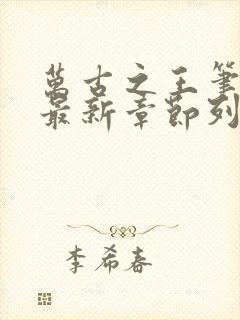 萬古之王筆
最新章節列
李希春